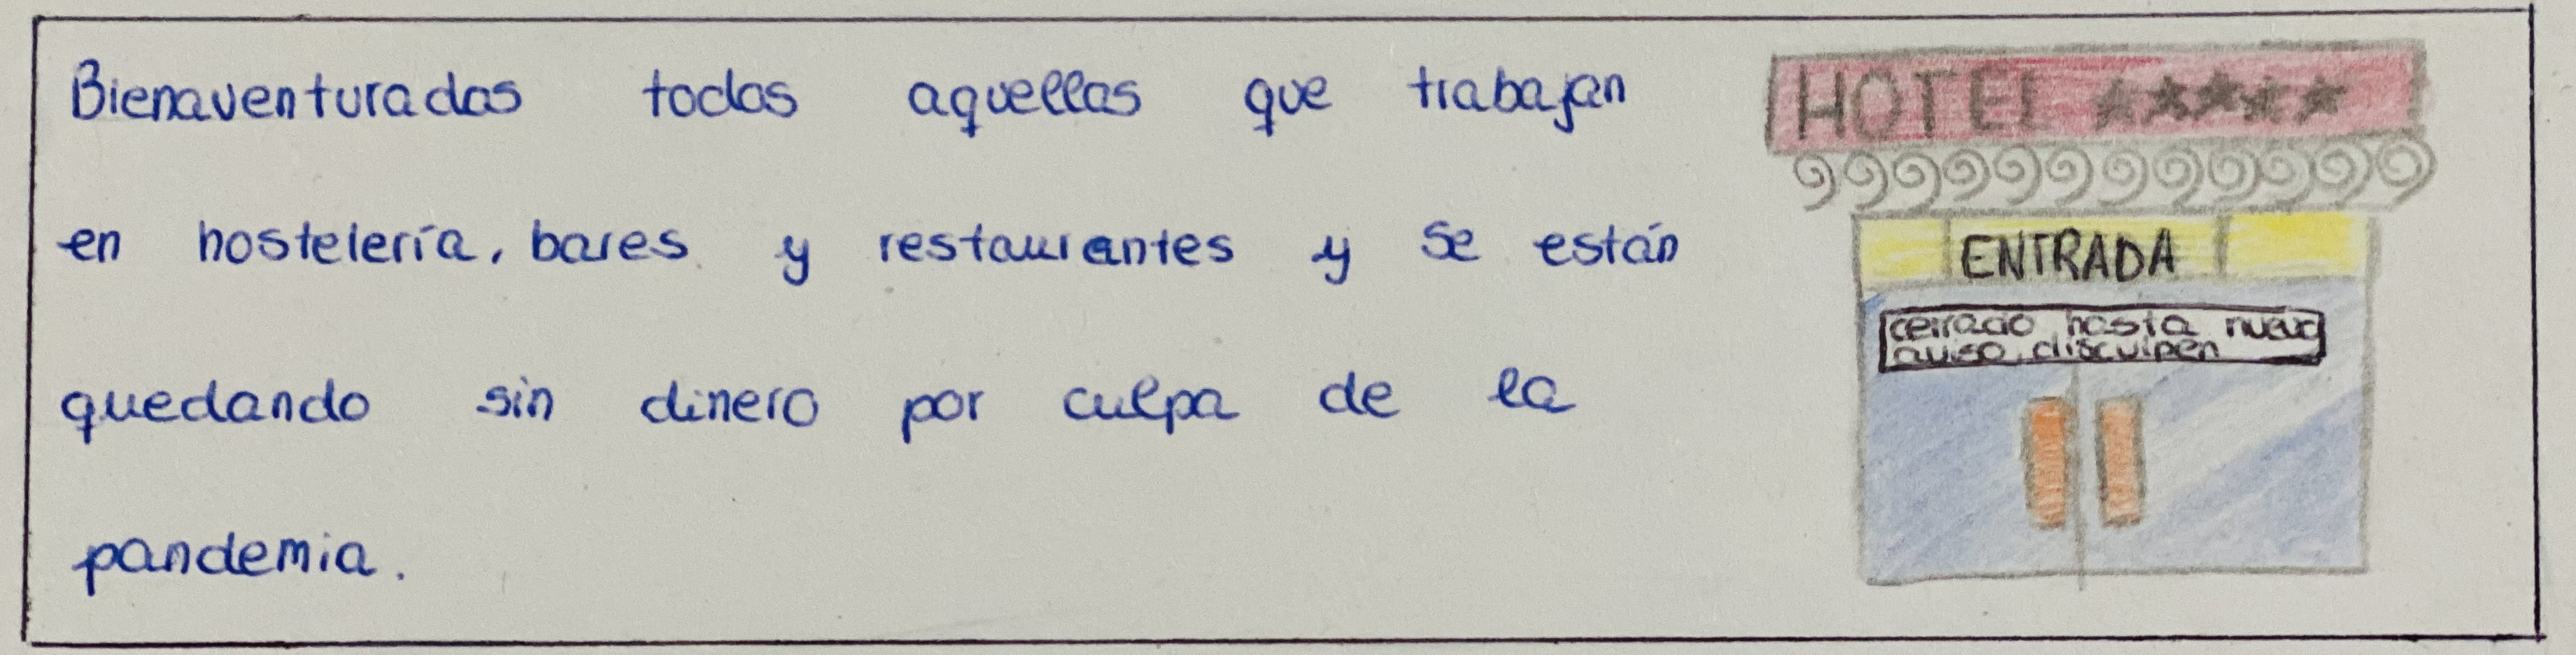 Bienaventuradas todas aquellas que trabajan
en hostelería, bares y restaurantes y se están
quedando sin dinero por culpa de la
pandemia.
HOTEL ★★★★★
ENTRADA
cerrado hasta nuevo
aviso, disculpen